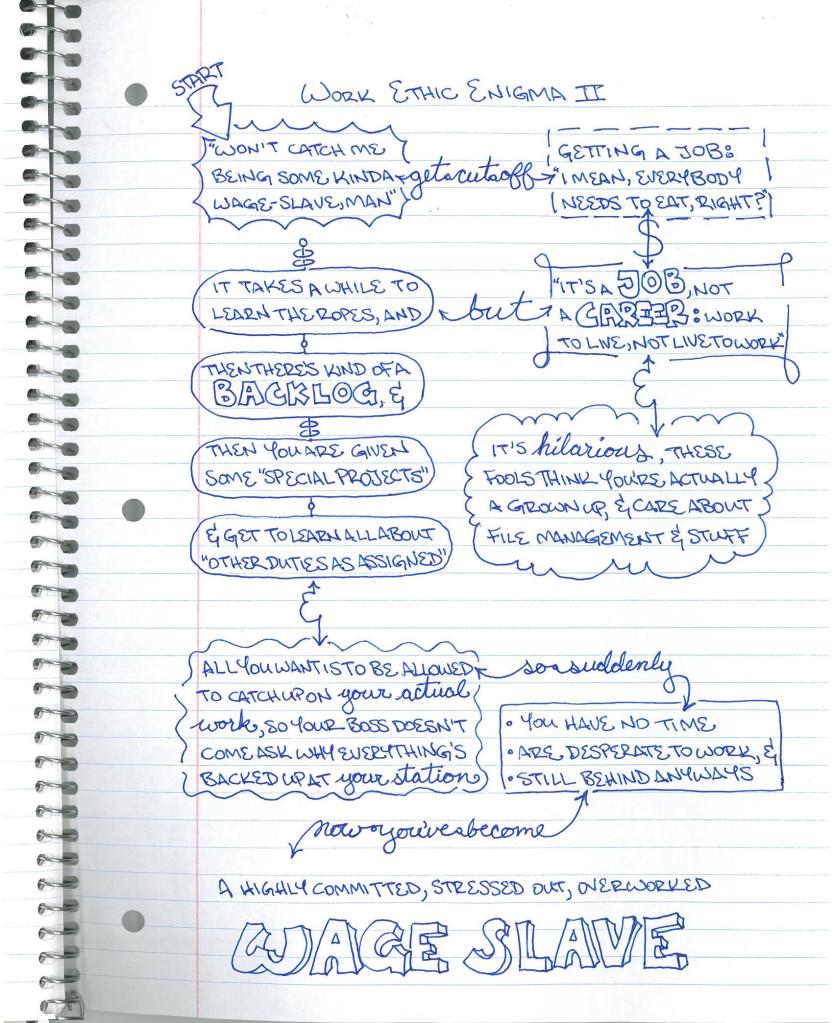 WORK ETHIC ENIGMA II
START
"WON'T CATCH ME
BEING SOME KINDA
WAGE-SLAVE, MAN"
get a cut off
GETTING A JOB:
"I MEAN, EVERYBODY
NEEDS TO EAT, RIGHT?"
$
"IT'S A JOB, NOT
A CAREER: WORK
TO LIVE, NOT LIVE TO WORK"
&
IT'S hilarious, THESE
FOOLS THINK YOU'RE ACTUALLY
A GROWN UP, & CARE ABOUT
FILE MANAGEMENT & STUFF
but
IT TAKES A WHILE TO
LEARN THE ROPES, AND
THEN THERE'S KIND OF A
BACKLOG, &
THEN YOU ARE GIVEN
SOME "SPECIAL PROJECTS"
& GET TO LEARN ALL ABOUT
"OTHER DUTIES AS ASSIGNED"
&
ALL YOU WANT IS TO BE ALLOWED
TO CATCH UP ON your actual
work, SO YOUR BOSS DOESN'T
COME ASK WHY EVERYTHING'S
BACKED UP AT your station
so suddenly
• YOU HAVE NO TIME
• ARE DESPERATE TO WORK, &
• STILL BEHIND ANYWAYS
now you've become
A HIGHLY COMMITTED, STRESSED OUT, OVERWORKED
WAGE SLAVE